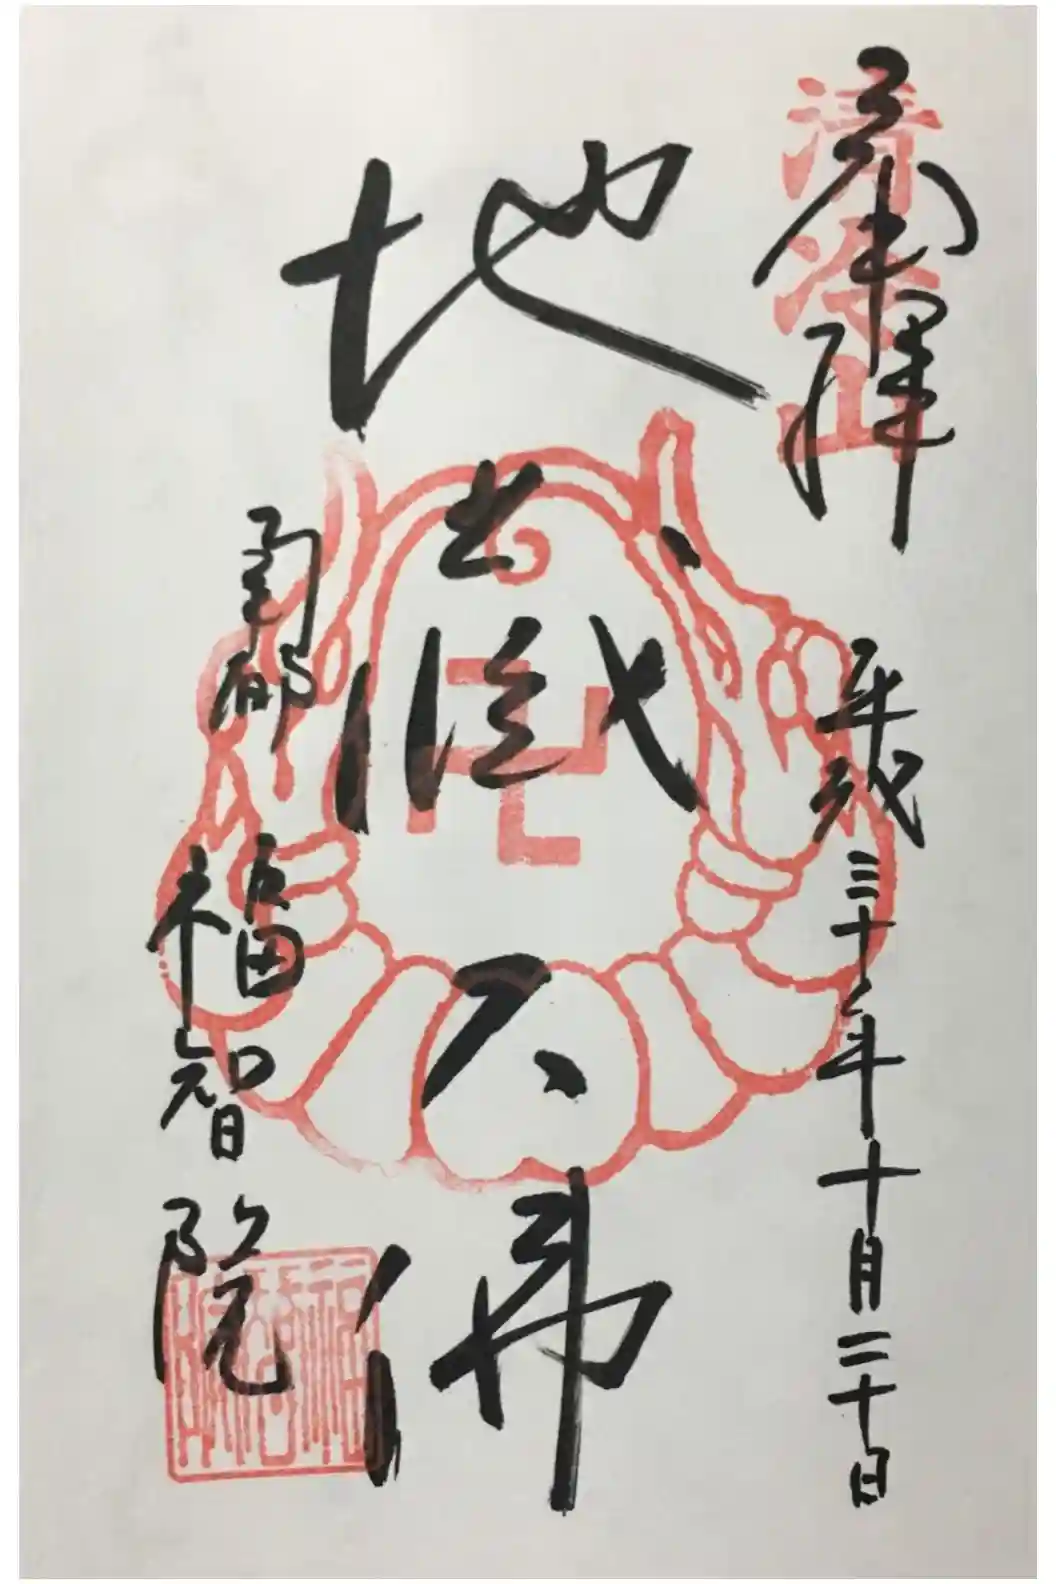 奉拝
平成三十年十月二十日
地蔵大佛
南都
福智院
清冷山
卍
福智院